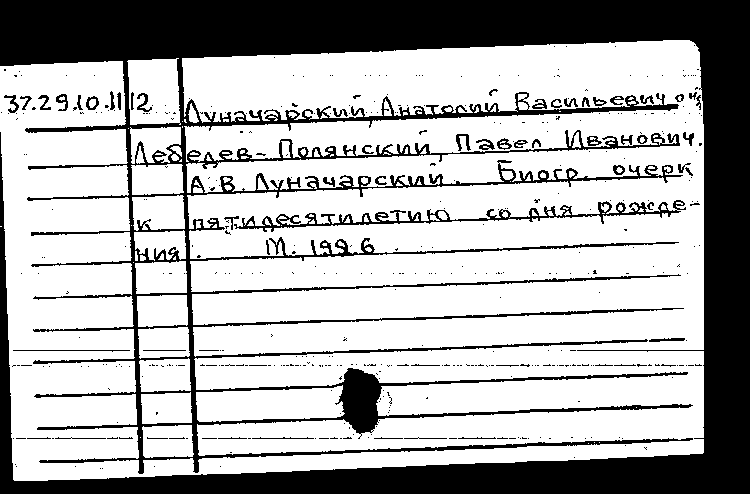 37.29.10.1112 Луначарский, Анатолий Васильевич о н.
Лебедев-Полянский, Павел Иванович.
А.В. Луначарский. Биогр. очерк
к пятидесятилетию со дня рожде-
ния. М., 1926.